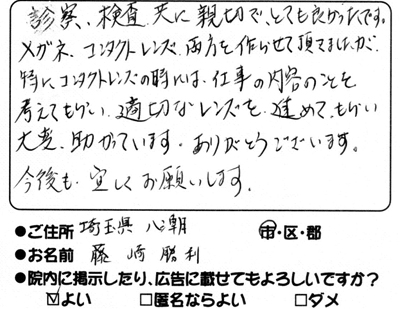 診察、検査 共に 親切で、とても良かったです。
メガネ、コンタクトレンズ、両方を作らせて頂きましたが、
特に コンタクトレンズの時には、仕事の内容のことを
考えてもらい、適切なレンズを 進めて、もらい
大変、助かっています。ありがとうございます。
今後も 宜しく お願いします。
●ご住所 埼玉県 八潮 市・区・郡
●お名前 藤崎 勝利
●院内に掲示したり、広告に載せてもよろしいですか?
☑よい □匿名ならよい □ダメ